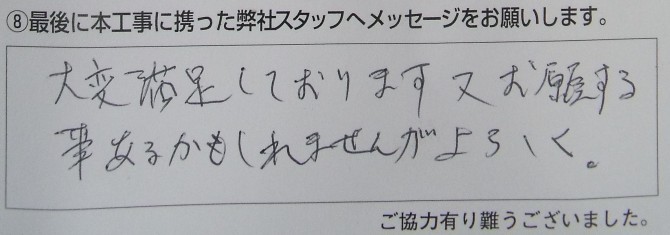 ⑧最後に本工事に携った弊社スタッフへメッセージをお願いします。
大変満足しております又お願する
事あるかもしれませんがよろしく。
ご協力有り難うございました。